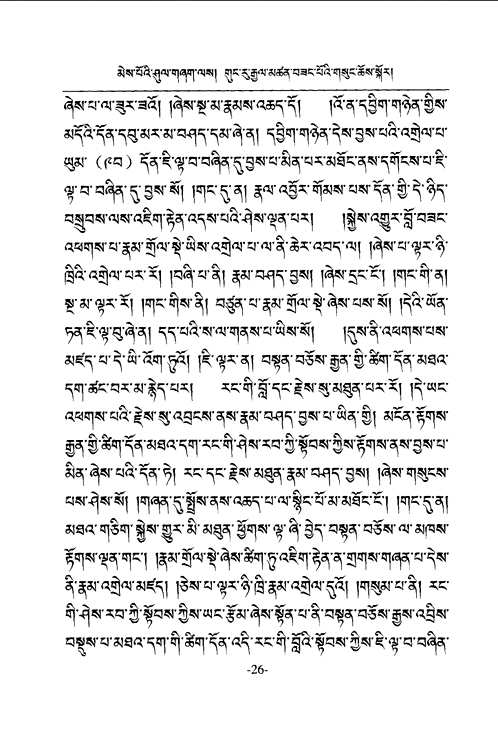 མེས་པོའི་ཤུལ་གཞག་ལས། གུང་རུ་རྒྱལ་མཚན་བཟང་པོའི་གསུང་ཆོས་སྐོར།
ཞེས་པ་ལ་ཟུར་ཟའོ། །ཞེས་སྔ་མ་རྣམས་འཆད་དོ། །འོ་ན་དབྱིག་གཉེན་གྱིས་
མདོའི་དོན་དབུ་མར་མ་བཤད་དམ་ཞེ་ན། དབྱིག་གཉེན་དེས་བྱས་པའི་འགྲེལ་པ་
ཡུམ་ (༩བ) དོན་ཇི་ལྟ་བ་བཞིན་དུ་བྱས་པ་མིན་པར་མཐོང་ནས་དགོངས་པ་ཇི་
ལྟ་བ་བཞིན་དུ་བྱས་སོ། །གང་དུ་ན། རྣལ་འབྱོར་གོམས་པས་དོན་གྱི་དེ་ཉིད་
བསླབས་ལས་འཇིག་རྟེན་འདས་པའི་ཤེས་ལྡན་པར། །སྐྱེས་འགྱུར་བློ་བཟང་
འཕགས་པ་རྣམ་གྲོལ་སྡེ་ཡིས་འགྲེལ་པ་ལ་ནི་ཆེར་འབད་ལ། །ཞེས་པ་ལྟར་ཉི་
ཁྲིའི་འགྲེལ་པར་རོ། །བཞི་པ་ནི། རྣམ་བཤད་བྱས། །ཞེས་དྲང་ངོ་། །གང་གི་ན།
སྔ་མ་ལྟར་རོ། །གང་གིས་ནི། བཙུན་པ་རྣམ་གྲོལ་སྡེ་ཞེས་པས་སོ། །དེའི་ཡོན་
ཏན་ཇི་ལྟ་བུ་ཞེ་ན། དད་པའི་ས་ལ་གནས་པ་ཡིས་སོ། །དུས་ནི་འཕགས་པས་
མཛད་པ་དེ་ཡི་འོག་ཏུའོ། །ཇི་ལྟར་ན། བསྟན་བཅོས་རྒྱན་གྱི་ཚིག་དོན་མཐའ་
དག་ཚང་བར་མ་རྙེད་པར། རང་གི་བློ་དང་རྗེས་སུ་མཐུན་པར་རོ། །དེ་ཡང་
འཕགས་པའི་རྗེས་སུ་འབྲངས་ནས་རྣམ་བཤད་བྱས་པ་ཡིན་གྱི། མངོན་རྟོགས་
རྒྱན་གྱི་ཚིག་དོན་མཐའ་དག་རང་གི་ཤེས་རབ་ཀྱི་སྟོབས་ཀྱིས་རྟོགས་ནས་བྱས་པ་
མིན་ཞེས་པའི་དོན་ཏེ། རང་དང་རྗེས་མཐུན་རྣམ་བཤད་བྱས། །ཞེས་གསུངས་
པས་ཤེས་སོ། །གཞན་དུ་སྤྲོས་ནས་འཆད་པ་ལ་སྙིང་པོ་མ་མཐོང་ངོ་། །གང་དུ་ན།
མཐའ་གཅིག་སྐྱེས་གྱུར་མི་མཐུན་ཕྱོགས་ལྟ་ཞི་བྱེད་བསྟན་བཅོས་ལ་མཁས་
རྟོགས་ལྡན་གང་། །རྣམ་གྲོལ་སྡེ་ཞེས་ཚིག་ཏུ་འཇིག་རྟེན་ན་གྲགས་གཞན་པ་དེས་
ནི་རྣམ་འགྲེལ་མཛད། །ཅེས་པ་ལྟར་ཉི་ཁྲི་རྣམ་འགྲེལ་དུའོ། །གསུམ་པ་ནི། རང་
གི་ཤེས་རབ་ཀྱི་སྟོབས་ཀྱིས་ཡང་རྩོམ་ཞེས་སྟོན་པ་ནི་བསྟན་བཅོས་རྒྱས་འབྲིས་
བསྡུས་པ་མཐའ་དག་གི་ཚིག་དོན་འདི་རང་གི་བློའི་སྟོབས་ཀྱིས་ཇི་ལྟ་བ་བཞིན་
-26-